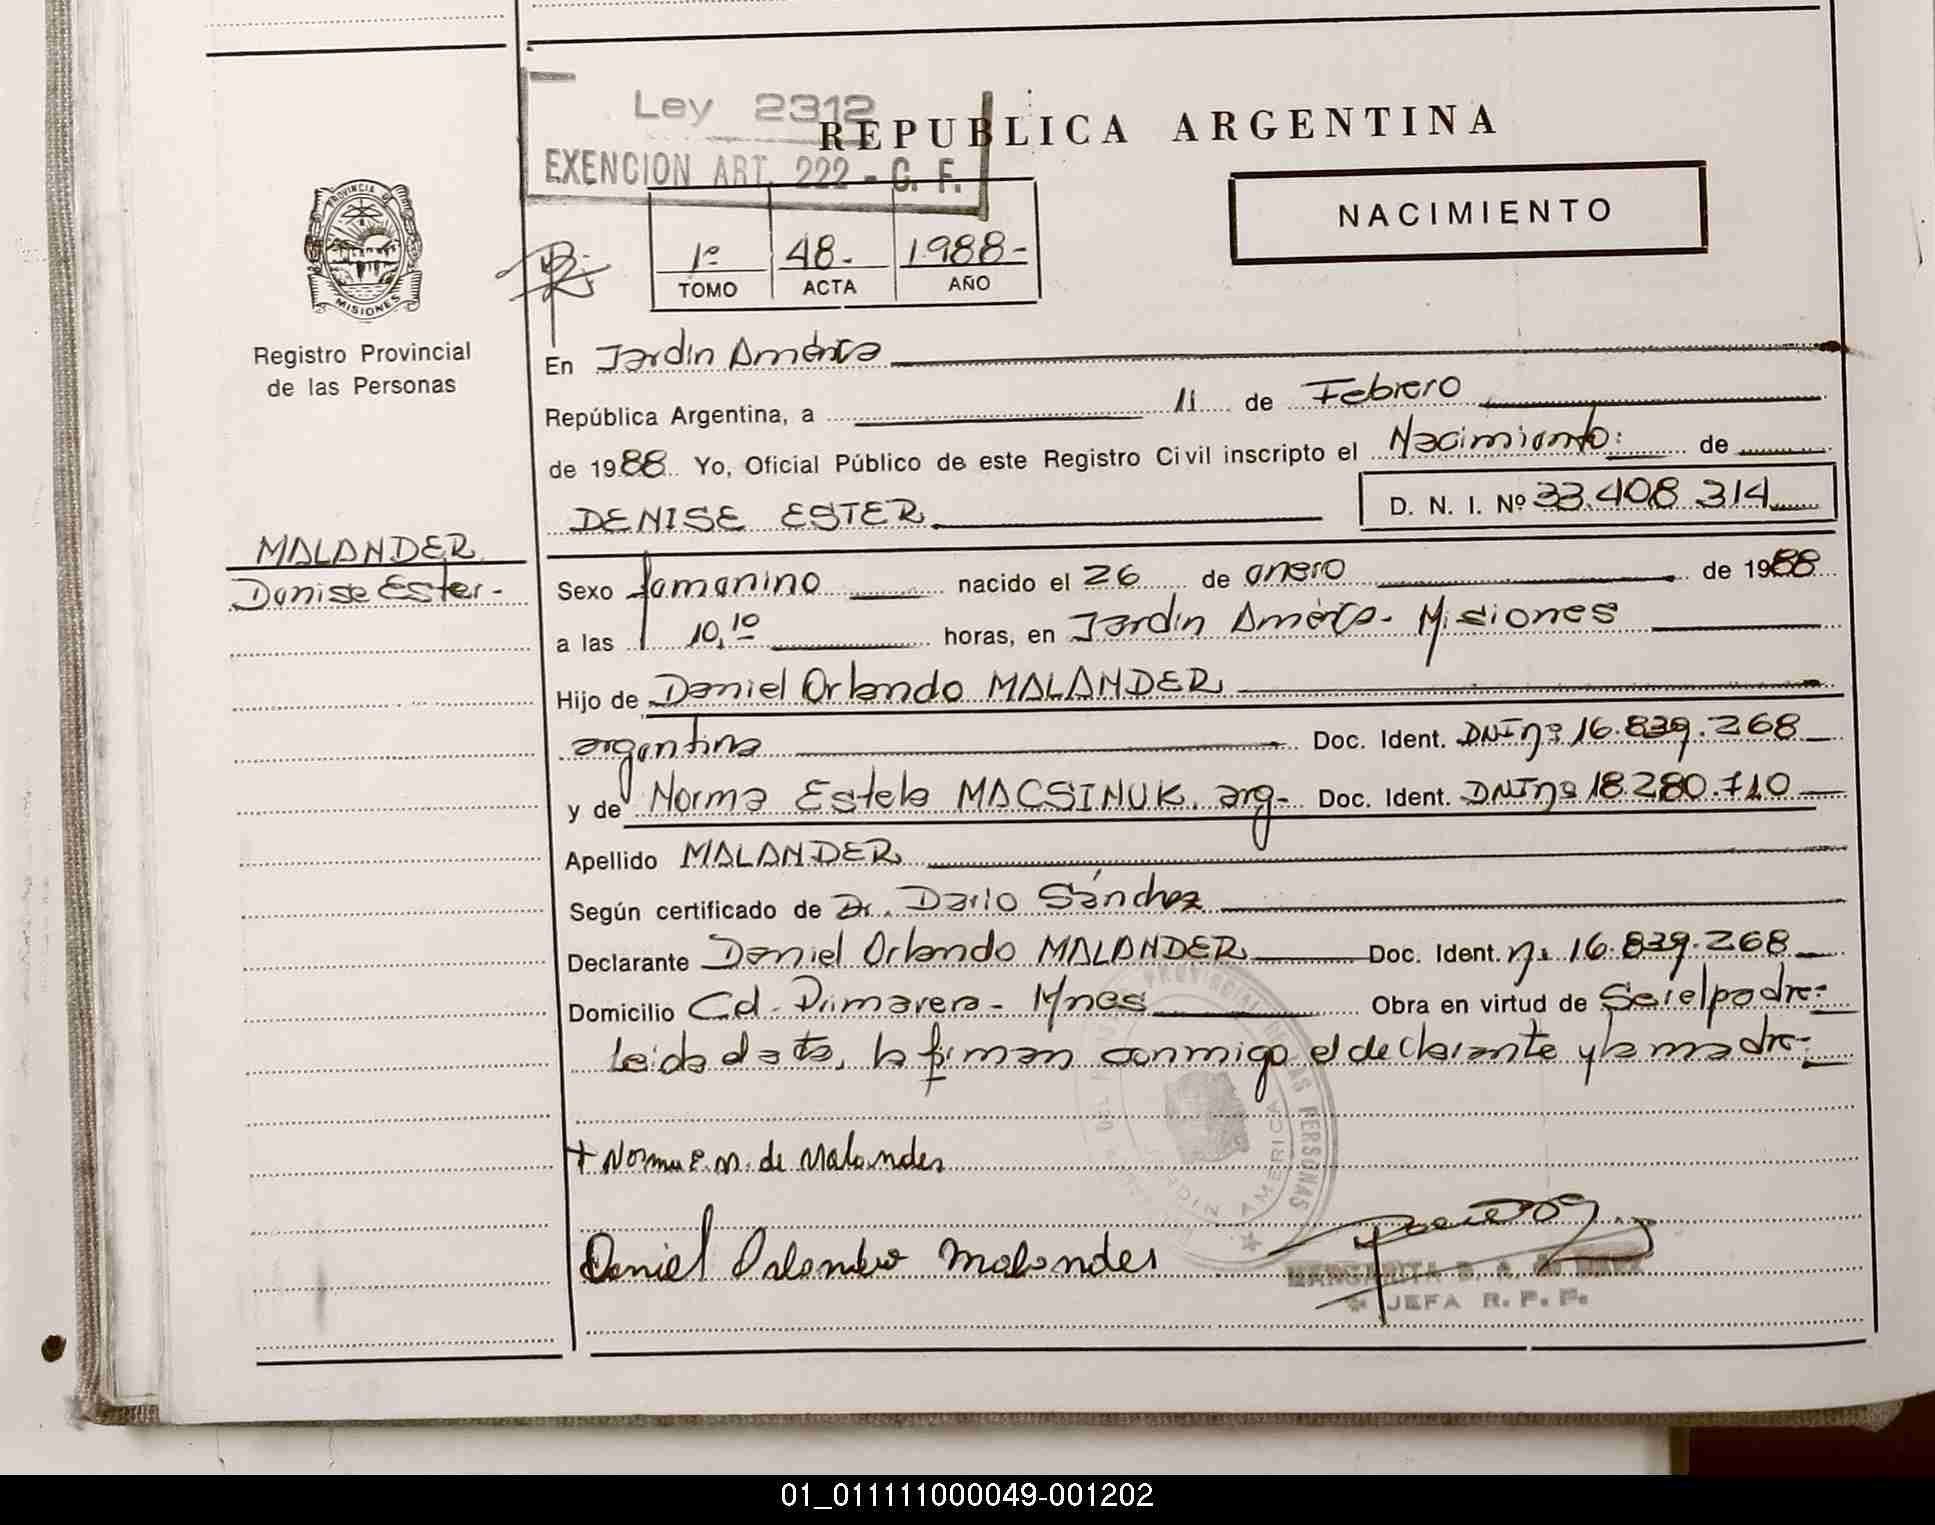 Ley 2312
REPUBLICA ARGENTINA
EXENCION ART. 222 - C. F.
NACIMIENTO
1º 48- 1988-
TOMO ACTA AÑO
PROVINCIA DE
MISIONES
Registro Provincial
de las Personas
En Jardin América
República Argentina, a 11 de Febrero
de 1988 Yo, Oficial Público de este Registro Civil inscripto el Nacimiento: de
DENISE ESTER D. N. I. Nº 33.408.314
MALANDER
Denise Ester-
Sexo femenino nacido el 26 de enero de 1988
a las 10,10 horas, en Jardin América- Misiones
Hijo de Daniel Orlando MALANDER
argentina Doc. Ident. DNI nº 16.839.268
y de Norma Estela MACSINUK. arg- Doc. Ident. DNI nº 18.280.710
Apellido MALANDER
Según certificado de Dr. Dario Sánchez
Declarante Daniel Orlando MALANDER Doc. Ident. nº 16.839.268
Domicilio Cd. Primavera- Mnes Obra en virtud de Ser el padre-
Leida el acta, la firman conmigo el declarante y la madre-
+ Norma E. M. de Malander
Daniel Orlando Malander
JEFA R. P. P.
01_011111000049-001202